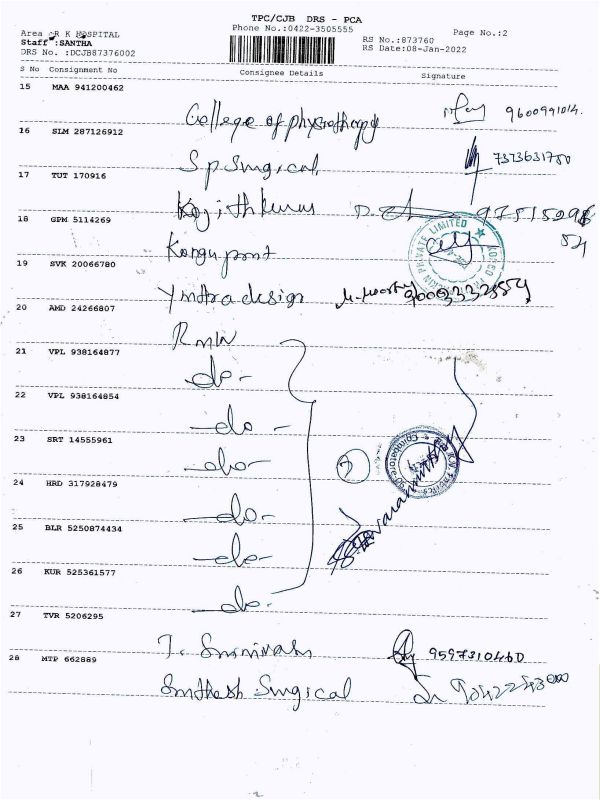 TPC/CJB DRS - PCA
Phone No.:0422-3505555
Area :R K HOSPITAL
Staff :SANTHA
DRS No. :DCJB87376002
RS No.:873760
RS Date:08-Jan-2022
Page No.:2
S No Consignment No Consignee Details Signature
15 MAA 941200462
College of physiotherapy 9600991014.
16 SLM 287126912
S p Surgical 7373631780
17 TUT 170916
18 GPM 5114269
Kongu print
PRIVATE LIMITED
19 SVK 20066780
Ymtra design
20 AMD 24266807
RMW
21 VPL 938164877
-do-
22 VPL 938164854
-do-
23 SRT 14555961
-do-
24 HRD 317928479
-do-
25 BLR 5250874434
-do-
26 KUR 525361577
-do-
7
Coimbatore
27 TVR 5206295
T. Srinivasan 9597310460
28 MTP 662889
Surgical